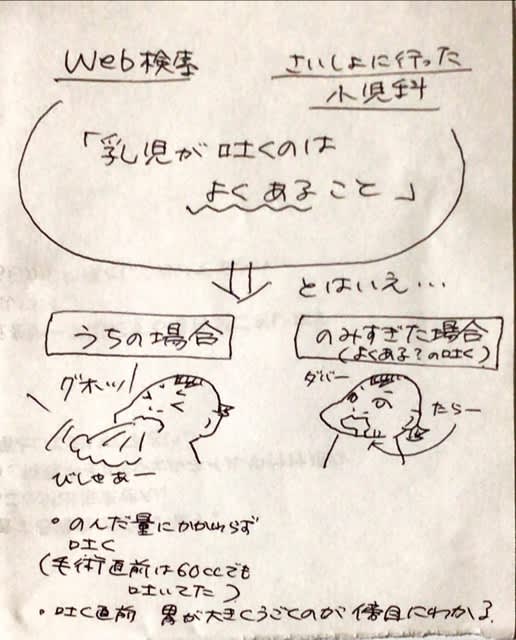 Web検索
さいしょに行った
小児科
「乳児が吐くのは
よくあること」
とはいえ…
うちの場合
のみすぎた場合
(よくある?の吐く)
グホッ
ダバー
たらー
びしゃぁー
。のんだ量にかかわらず
吐く
(手術直前は60ccでも
吐いてた)
。吐く直前 胃が大きくうごくのが傍目にわかる.